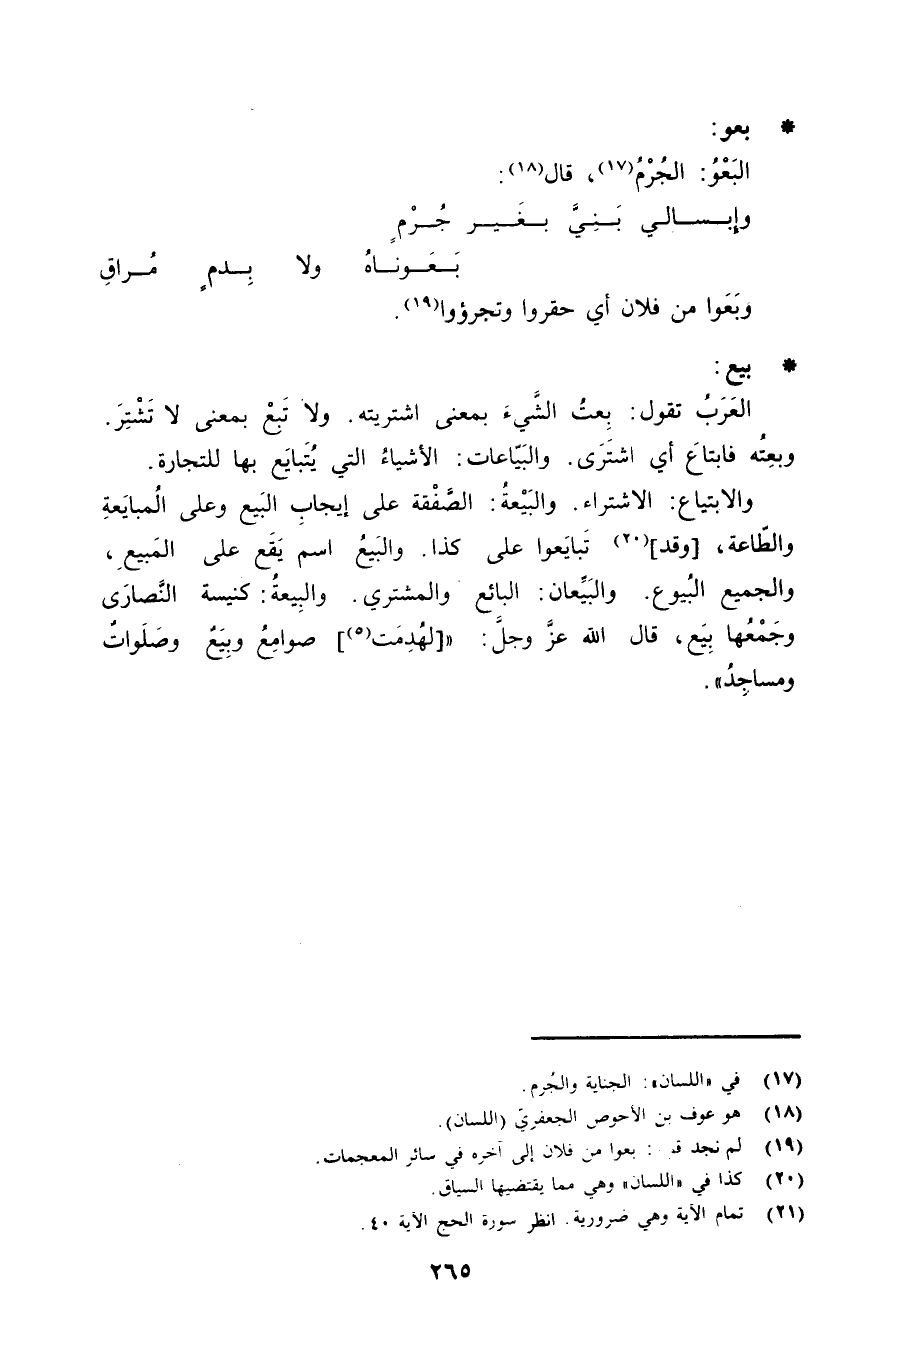 * بعو :
البَعْوُ: الجُرْمُ(١٧)، قال(١٨):
وإبـسـالي بَـنِيَّ بـغَـيـر جُـرْمٍ
بَـعَـونـاهُ ولا بِـدمٍ مُـراقِ
وبَعَوا من فلان أي حقروا وتجرؤوا(١٩).
* بيع :
العَرَبُ تقول: بِعتُ الشَّيءَ بمعنى اشتريته. ولا تَبِعْ بمعنى لا تَشْتِرَ.
وبعتُه فابتاعَ أي اشتَرَى. والبَيّاعات: الأشياءُ التي يُتَبايَع بها للتجارة.
والابتياع: الاشتراء. والبَيْعةُ: الصَّفْقة على إيجابِ البَيع وعلى المُبايَعةِ
والطّاعة، [وقد](٢٠) تَبايَعوا على كذا. والبَيعُ اسم يَقَع على المَبيع،
والجميع البُيوع. والبَيِّعان: البائع والمشتري. والبِيعةُ: كنيسة النَّصارَى
وجَمْعُها بِيَع، قال الله عزَّ وجلَّ: «[لهُدِمَت(٥)] صوامِعُ وبِيَعٌ وصَلَواتٌ
ومساجِدُ».
(١٧) في «اللسان»: الجناية والجُرم.
(١٨) هو عوف بن الأحوص الجعفريّ (اللسان).
(١٩) لم نجد : بعوا من فلان إلى آخره في سائر المعجمات.
(٢٠) كذا في «اللسان» وهي مما يقتضيها السياق.
(٢١) تمام الآية وهي ضرورية. انظر سورة الحج الآية ٤٠.
٢٦٥